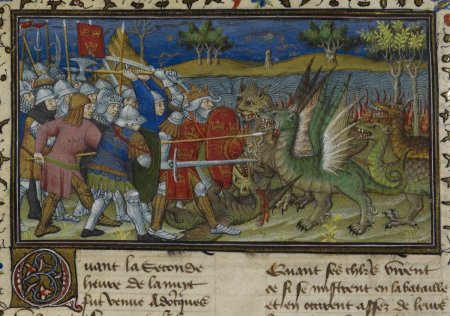 Quant la Seconde
heure de la nuyt
fut venue Adōcques
quant ses virent
ce si se mistrent en la bataille
et en occirent assez de leurs